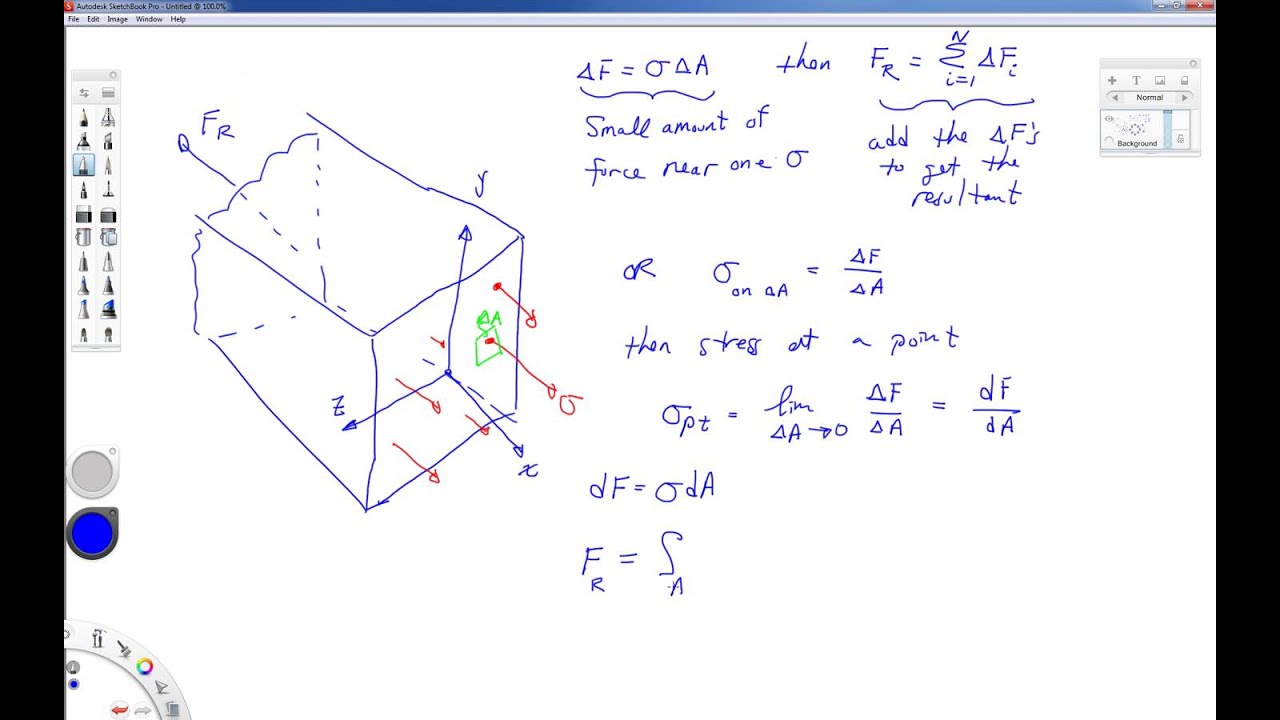 Autodesk SketchBook Pro - Untitled @ 100.0%
File Edit Image Window Help
ΔF = σΔA then F_R = Σ_{i=1}^{N} ΔF_i
Small amount of
force near one σ
add the ΔF's
to get the
resultant
F_R
y
ΔA
σ
z
x
OR σ_{on ΔA} = ΔF/ΔA
then stress at a point
σ_{pt} = lim_{ΔA→0} ΔF/ΔA = dF/dA
dF = σdA
F_R = ∫_A
Normal
Background